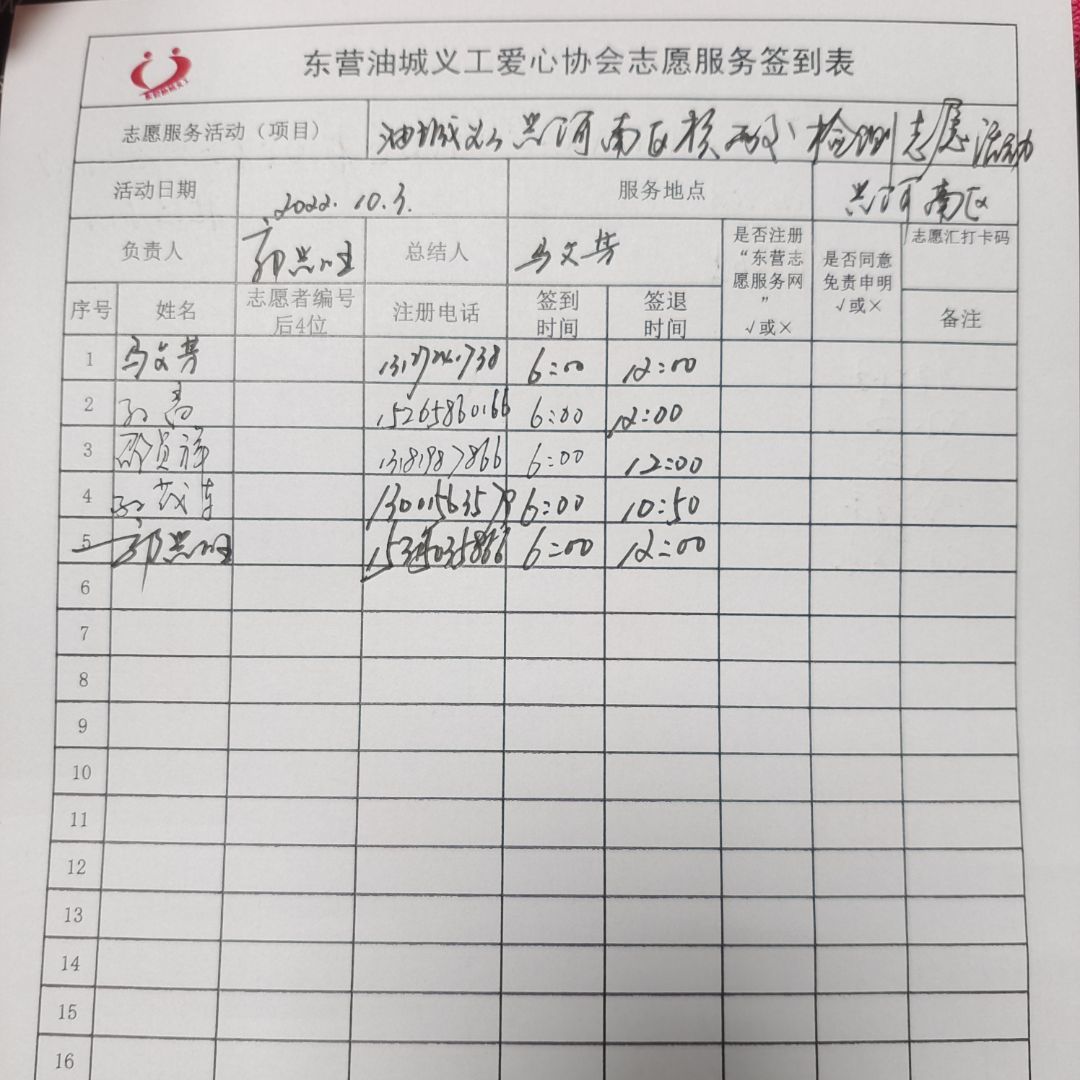 东营油城义工爱心协会志愿服务签到表
志愿服务活动（项目） 油城义工 兴河南区核酸检测志愿活动
活动日期 2022.10.3. 服务地点 兴河南区
负责人 郭兴旺 总结人 马文芳 是否注册“东营志愿服务网” √或× 是否同意免责申明 √或× 志愿汇打卡码
序号 姓名 志愿者编号后4位 注册电话 签到时间 签退时间 备注
1 马文芳 6:00 12:00
2 孙 15265860166 6:00 12:00
3 邵 祥 13181987866 6:00 12:00
4 孙茂 6:00 10:50
5 郭兴旺 6:00 12:00
6
7
8
9
10
11
12
13
14
15
16